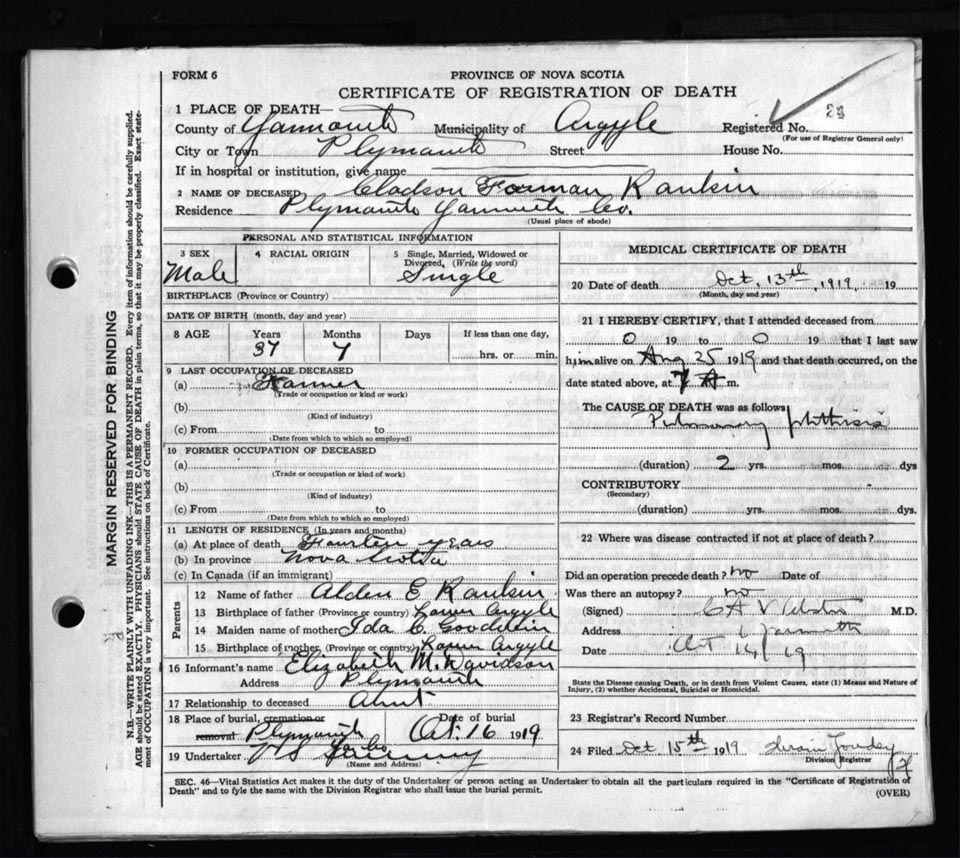 FORM 6
PROVINCE OF NOVA SCOTIA
CERTIFICATE OF REGISTRATION OF DEATH
MARGIN RESERVED FOR BINDING
N.B.—WRITE PLAINLY, WITH UNFADING INK—THIS IS A PERMANENT RECORD. Every item of information should be carefully supplied.
AGE should be stated EXACTLY. PHYSICIANS should STATE CAUSE OF DEATH in plain terms, so that it may be properly classified. Exact state-
ment of OCCUPATION is very important. See instructions on back of Certificate.
1 PLACE OF DEATH—
County of Yarmouth Municipality of Argyle Registered No. 23
(For use of Registrar General only)
City or Town Plymouth Street House No.
If in hospital or institution, give name
2 NAME OF DECEASED Cladson Forman Rankin
Residence Plymouth Yarmouth Co.
(Usual place of abode)
PERSONAL AND STATISTICAL INFORMATION
3 SEX 4 RACIAL ORIGIN 5 Single, Married, Widowed or
Divorced, (Write the word)
Male Single
BIRTHPLACE (Province or Country)
DATE OF BIRTH (month, day and year)
8 AGE Years Months Days If less than one day,
37 7 hrs. or min.
9 LAST OCCUPATION OF DECEASED
(a) Farmer
(Trade or occupation or kind or work)
(b)
(Kind of industry)
(c) From to
(Date from which to which so employed)
10 FORMER OCCUPATION OF DECEASED
(a)
(Trade or occupation or kind of work)
(b)
(Kind of industry)
(c) From to
(Date from which to which so employed)
11 LENGTH OF RESIDENCE (In years and months)
(a) At place of death Fourten years
(b) In province Nova Scotia
(c) In Canada (if an immigrant)
Parents
12 Name of father Alden E Rankin
13 Birthplace of father (Province or country) Lower Argyle
14 Maiden name of mother Ida C
15 Birthplace of mother, (Province or country) Lower Argyle
16 Informant's name Elizabeth M. Davidson
Address Plymouth
17 Relationship to deceased Aunt
18 Place of burial, cremation or Date of burial
removal Plymouth Oct. 16 1919
19 Undertaker V S
(Name and Address)
MEDICAL CERTIFICATE OF DEATH
20 Date of death Oct, 13th, 1919 19
(Month, day and year)
21 I HEREBY CERTIFY, that I attended deceased from
0 19 to 0 19 that I last saw
him alive on Aug 25 1919 and that death occurred, on the
date stated above, at 7 A m.
The CAUSE OF DEATH was as follows
Pulmonary phthisis
(duration) 2 yrs. mos. dys
CONTRIBUTORY
(Secondary)
(duration) yrs. mos. dys.
22 Where was disease contracted if not at place of death?
Did an operation precede death? no Date of
Was there an autopsy? no
(Signed) C A Webster M.D.
Address Yarmouth
Date Oct 14/19
State the Disease causing Death, or in death from Violent Causes, state (1) Means and Nature of
Injury, (2) whether Accidental, Suicidal or Homicidal.
23 Registrar's Record Number
24 Filed Oct 15th 1919
Division Registrar
SEC. 46—Vital Statistics Act makes it the duty of the Undertaker or person acting as Undertaker to obtain all the particulars required in the "Certificate of Registration of
Death" and to fyle the same with the Division Registrar who shall issue the burial permit.
(OVER)